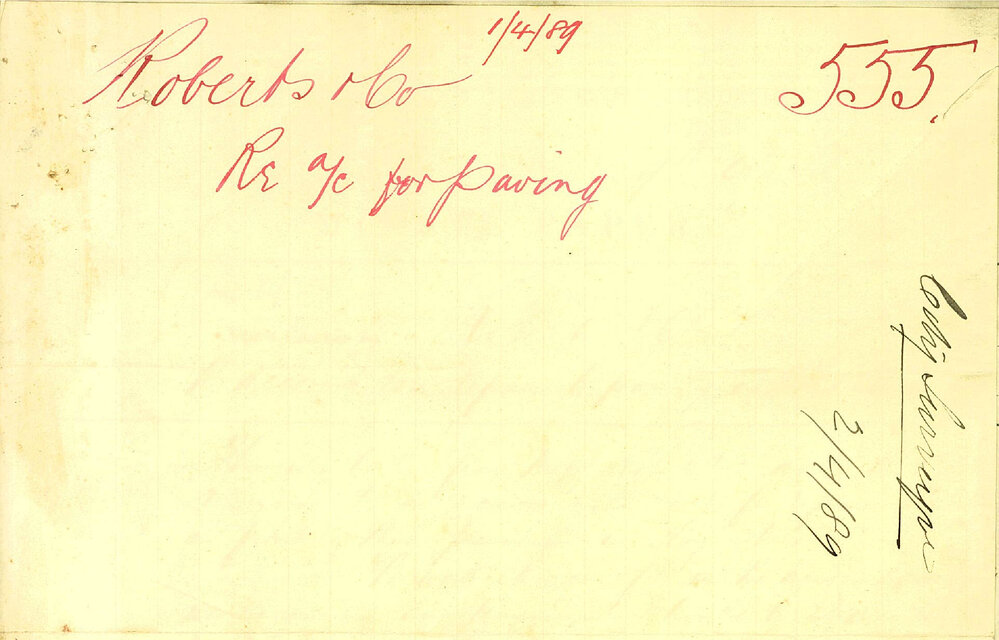 1/4/89
Roberts & Co
555.
Re a/c for paving
City Surveyor
2/4/89